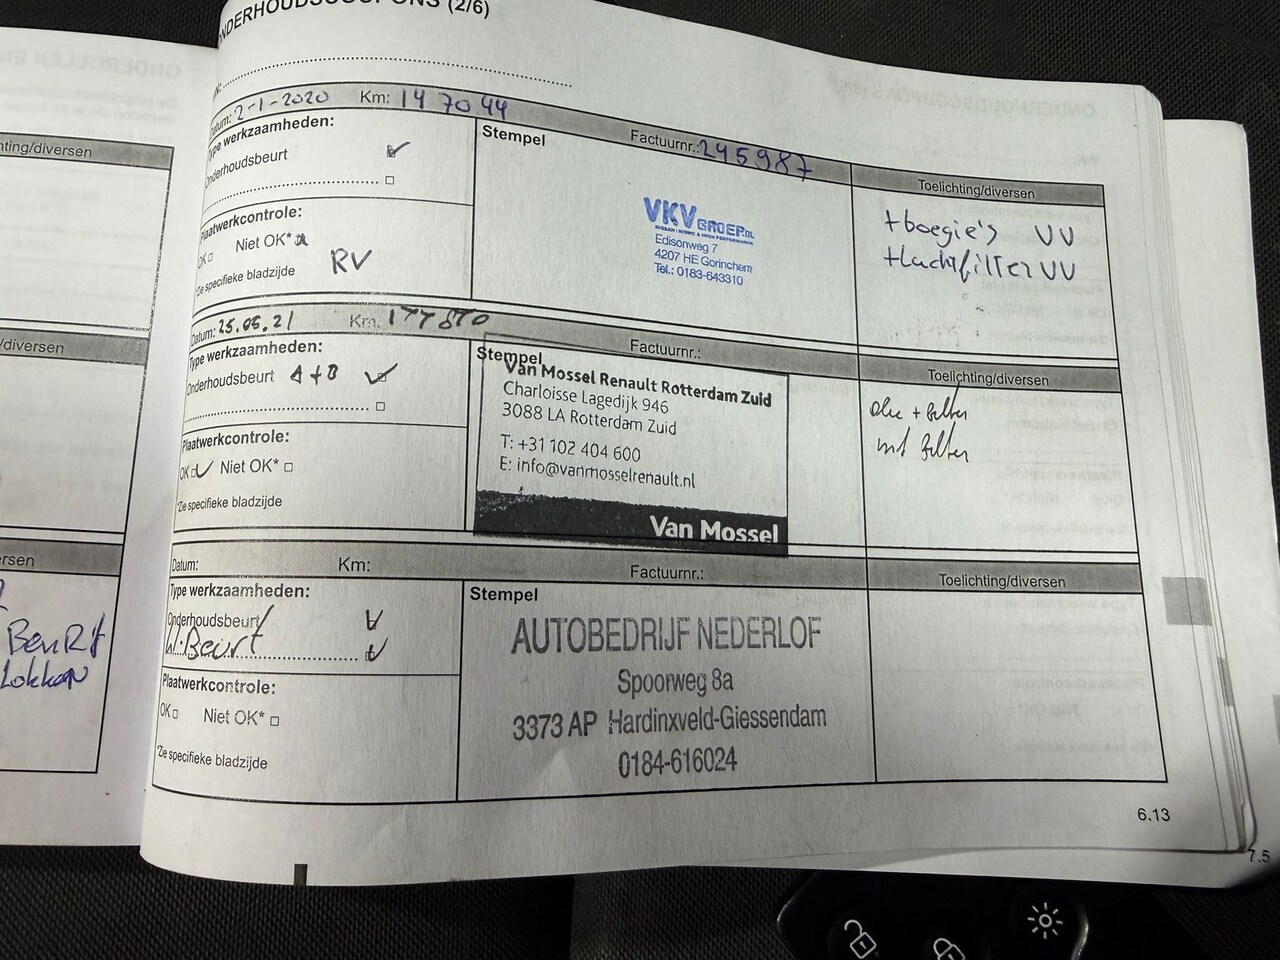 ONDERHOUDSCOUPONS (2/6)
Datum: 2-1-2020 Km: 147044
Type werkzaamheden:
Onderhoudsbeurt
Plaatwerkcontrole:
OK Niet OK*
*Zie specifieke bladzijde RV
Stempel
Factuurnr.: 245987
VKV GROEP.nl
Edisonweg 7
4207 HE Gorinchem
Tel.: 0183-643310
Toelichting/diversen
+boegie's VV
+Luchtfilter VV
Datum: 25.05.21 Km: 177870
Type werkzaamheden:
Onderhoudsbeurt A+B
Plaatwerkcontrole:
OK Niet OK*
*Zie specifieke bladzijde
Stempel
Factuurnr.:
Van Mossel Renault Rotterdam Zuid
Charloisse Lagedijk 946
3088 LA Rotterdam Zuid
T: +31 102 404 600
E: info@vanmosselrenault.nl
Van Mossel
Toelichting/diversen
olie + filter
int filter
Datum: Km:
Type werkzaamheden:
Onderhoudsbeurt
W.Beurt
Plaatwerkcontrole:
OK Niet OK*
*Zie specifieke bladzijde
Stempel
Factuurnr.:
AUTOBEDRIJF NEDERLOF
Spoorweg 8a
3373 AP Hardinxveld-Giessendam
0184-616024
Toelichting/diversen
6.13
7.5